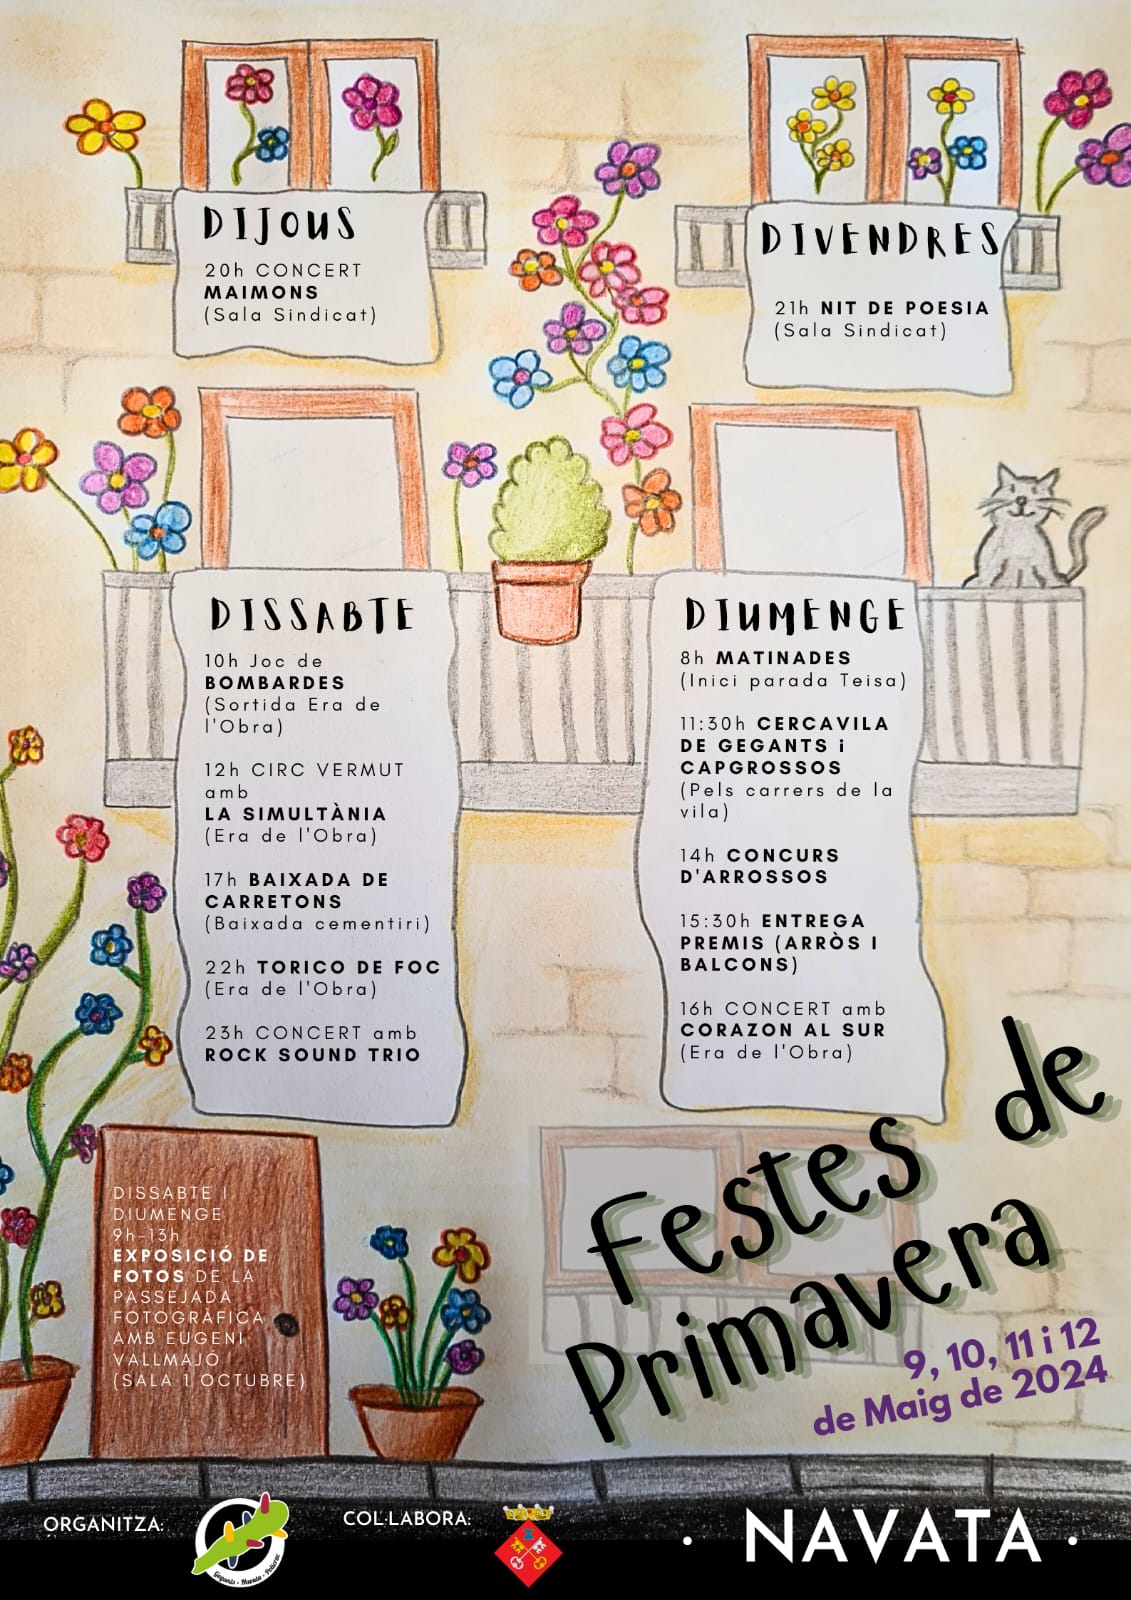 DIJOUS
20h CONCERT
MAIMONS
(Sala Sindicat)
DIVENDRES
21h NIT DE POESIA
(Sala Sindicat)
DISSABTE
10h Joc de
BOMBARDES
(Sortida Era de
l'Obra)
12h CIRC VERMUT
amb
LA SIMULTÀNIA
(Era de l'Obra)
17h BAIXADA DE
CARRETONS
(Baixada cementiri)
22h TORICO DE FOC
(Era de l'Obra)
23h CONCERT amb
ROCK SOUND TRIO
DIUMENGE
8h MATINADES
(Inici parada Teisa)
11:30h CERCAVILA
DE GEGANTS i
CAPGROSSOS
(Pels carrers de la
vila)
14h CONCURS
D'ARROSSOS
15:30h ENTREGA
PREMIS (ARRÒS I
BALCONS)
16h CONCERT amb
CORAZON AL SUR
(Era de l'Obra)
DISSABTE I
DIUMENGE
9h-13h
EXPOSICIÓ DE
FOTOS DE LA
PASSEJADA
FOTOGRÀFICA
AMB EUGENI
VALLMAJÓ
(SALA 1 OCTUBRE)
Festes de
Primavera
9, 10, 11 i 12
de Maig de 2024
ORGANITZA:
Gegants · Navata
COL·LABORA:
· NAVATA ·